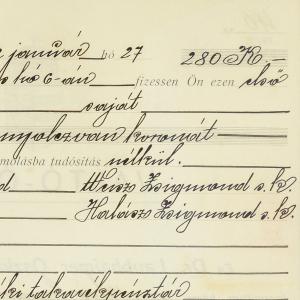 január hó 27 280 K.-
hó 6-án fizessen Ön ezen első
saját
nyolczvan koronát
molásba tudósítás nélkül.
d Weisz Zsigmond s.k.
Halász Zsigmond s.k.
ki takarékpénztár